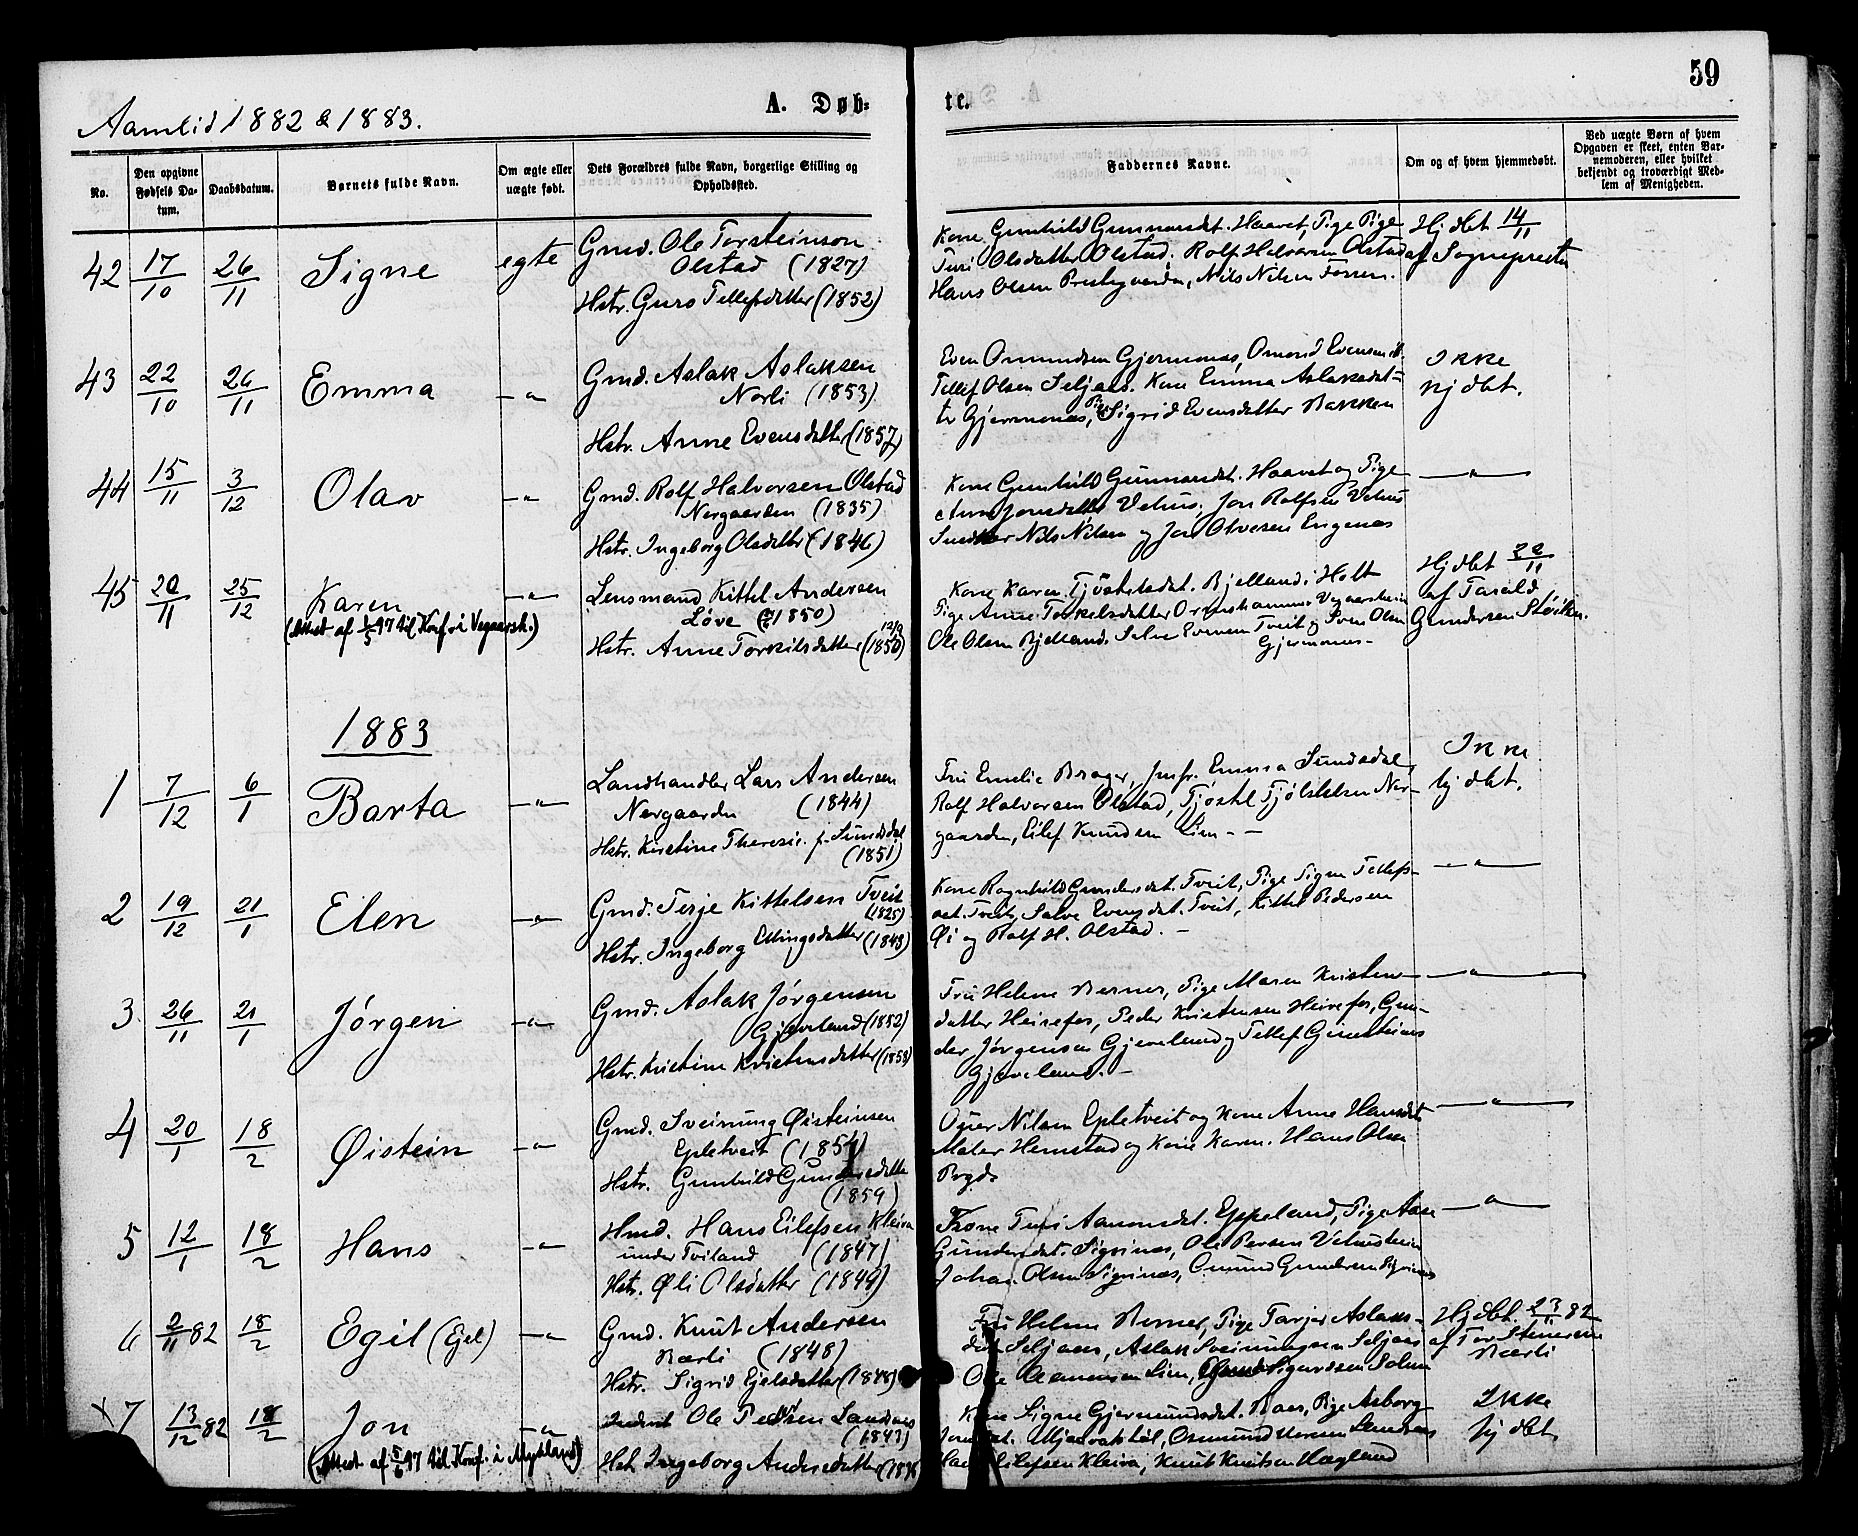 59
Aamlid 1882 & 1883.
A. Døb-
te.
No.
Den opgivne Fødsels Da-tum.
Daabsdatum.
Børnets fulde Navn.
Om ægte eller uægte født.
Dets Forældres fulde Navn, borgerlige Stilling og Opholdssted.
Faddernes Navne.
Om og af hvem hjemmedøbt.
Ved uægte Børn af hvem Opgaven er skeet, enten Bar-nemoderen, eller hvilket bekjendt og troværdigt Med-lem af Menigheden.
42 17/10 26/11 Signe egte
Gmd. Ole Torsteinson
Olstad (1827)
Hstr. Guro Tellefsdatter (1852)
Kone Gunhild Gunnarsdt. Haavet, Pige
Turi Olsdatter Olstad, Rolf Halvorsen Olstad
Hans Olsen Prestegaarden, Nils Nilsen Fossen.
Hjdbt 14/11
af Sognepresten
43 22/10 26/11 Emma -"-
Gmd. Aslak Aslaksen
Norli (1853)
Hstr. Anne Evensdatter (1857)
Even Omundsen Gjermones, Omund Evensen
Tellef Olsen Seljaas. Kone Emma Aslaksdat-
ter Gjermones, Pige Sigrid Evensdatter Bakken
Ikke
hjdbt.
44 15/11 3/12 Olav -"-
Gmd. Rolf Halvorsen Olstad
Nergaarden (1835)
Hstr. Ingeborg Olsdatter (1846)
Kone Gunhild Gunnarsdt. Haavet og Pige
Anne Jonsdatter Vehus, Jon Rolfsen Vehus
Nils Nilsen og Jon Olvesen Engenes
-"-
45 20/11 25/12 Karen -"-
(Attest af 1/5 97 til Konf. i Vegaarsh.)
Lensmand Kittel Andersen
Løve (1850)
Hstr. Anne Torkilsdatter (1850)
Kone Karen Tjøstelsdt. Bjelland i Holt
Pige Anne Torkelsdatter Vegaarsheien
Ole Olsen Bjelland, Salve Evensen Tveit og Sven Olsen
Gjermones-
Hjdbt 20/11
af Tarald
Gundersen Støilen.
1883
1 7/12 6/1 Barta -"-
Landhandler Lars Andersen
Nergaarden (1844)
Hstr. Kirstine Theresie f. Sundsdal
(1851)
Fru Emelie Brager, Jmfr. Emma Sundsdal,
Rolf Halvorsen Olstad, Tjøstel Tjøstelsen Ner-
gaarden, Eilef Knudsen Lien - -
Ikke
hjdbt.
2 19/12 21/1 Elen -"-
Gmd. Terje Kittelsen Tveit
(1825)
Hstr. Ingeborg Ellingsdatter (1843)
Kone Ragnhild Gundersdt. Tveit, Pige Signe Tellefs-
dt. Tveit, Salve Evensdat. Tveit, Kittel Pedersen
Øi og Rolf H. Olstad. -
-"-
3 26/11 21/1 Jørgen -"-
Gmd. Aslak Jørgensen
Gjeveland (1852)
Hstr. Kirstine Kristensdatter (1858)
Fru Helene Berner, Pige Maren Kristens-
datter Heirefos, Peder Kristensen Heirefos, Gun-
der Jørgensen Gjeveland og Tellef Gunsteinsen
Gjeveland. -
-"-
4 20/1 18/2 Øistein -"-
Gmd. Sveinung Øisteinsen
Epletveit (1854)
Hstr. Gunhild Gundersdatter
(1859)
Nilsen Epletveit og Kone Anne Hansdt
Hemstad og Kone Karen. Hans Olsen
-"-
5 12/1 18/2 Hans -"-
Hmd. Hans Eilefsen Kleiva
under Tviland (1847)
Hstr. Øli Olsdatter (1849)
Kone Turi Aamonsdt. Eppeland, Pige Aase
Gundersdt. Sigrinæs, Ole Persen Vehusheien
Johan Olsen Sigrinæs, Omund Gundersen Sigrinæs
-"-
6 2/11 82 18/2 Egil (Ejel) -"-
Gmd. Knut Andersen
Nærli (1848)
Hstr. Sigrid Ejelsdatter (1848)
Fru Helene Berner, Pige Tarjer Aslaks-
dtr Seljaas, Aslak Sveinungsen Seljaas
Ole Aamonsen Lien, Sigurdsen
Hjdbt. 23/11 82
af Tor Stenersen
Nærli
x7 13/12 82 18/2 Jon -"-
(Attest af 5/6 97 til Konf. i Mykland)
Inderst Ole Pedersen Landnes
(1843)
Hstr Ingeborg Andersdatter
Kone Signe Gjermundsdt. Baas, Pige Asborg
Jonsdt. Omund Landnes
Hans Eilefsen Kleiva, Knut Knutsen Hægland
Ikke
hjdbt.